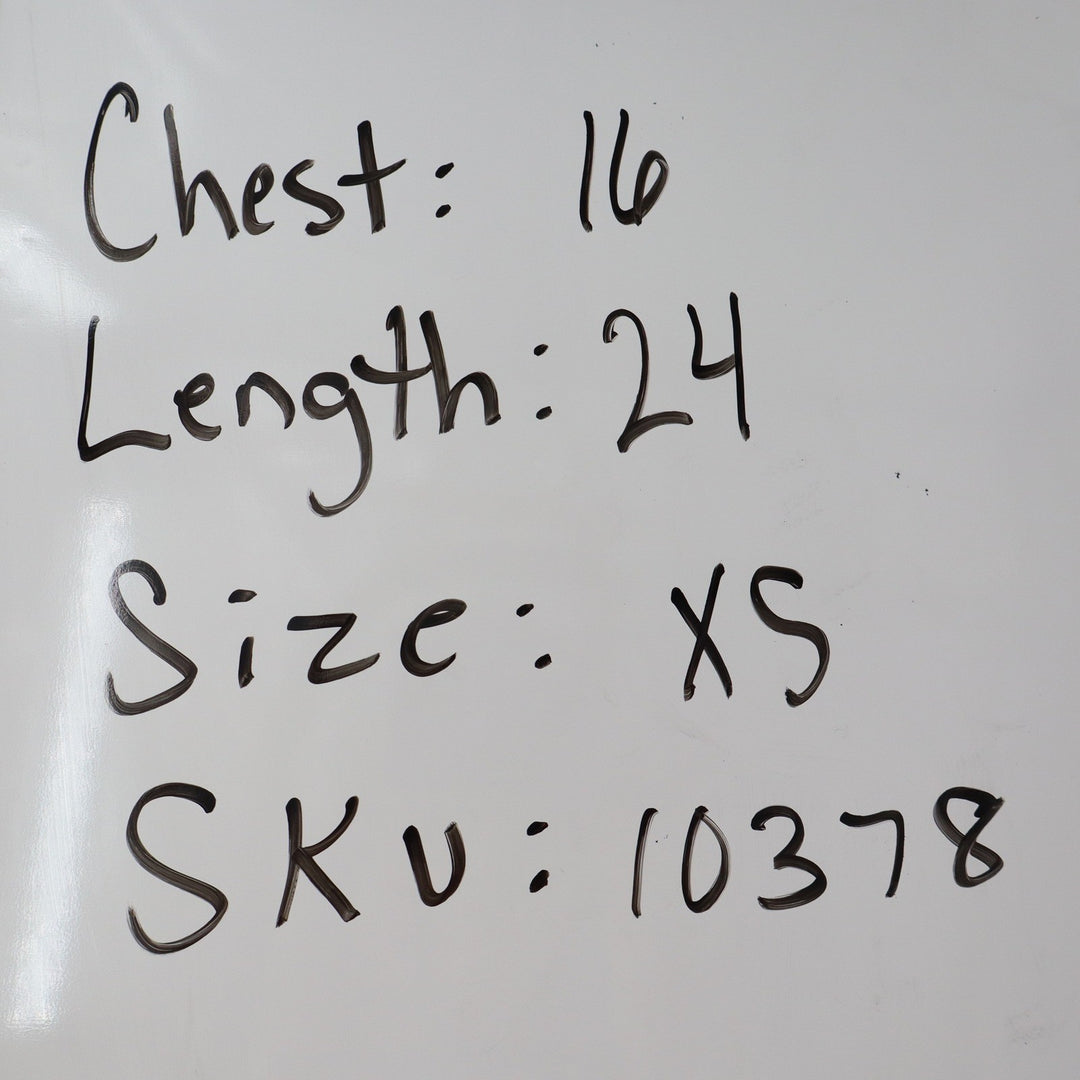 Chest: 16
Length: 24
Size: XS
SKU: 10378